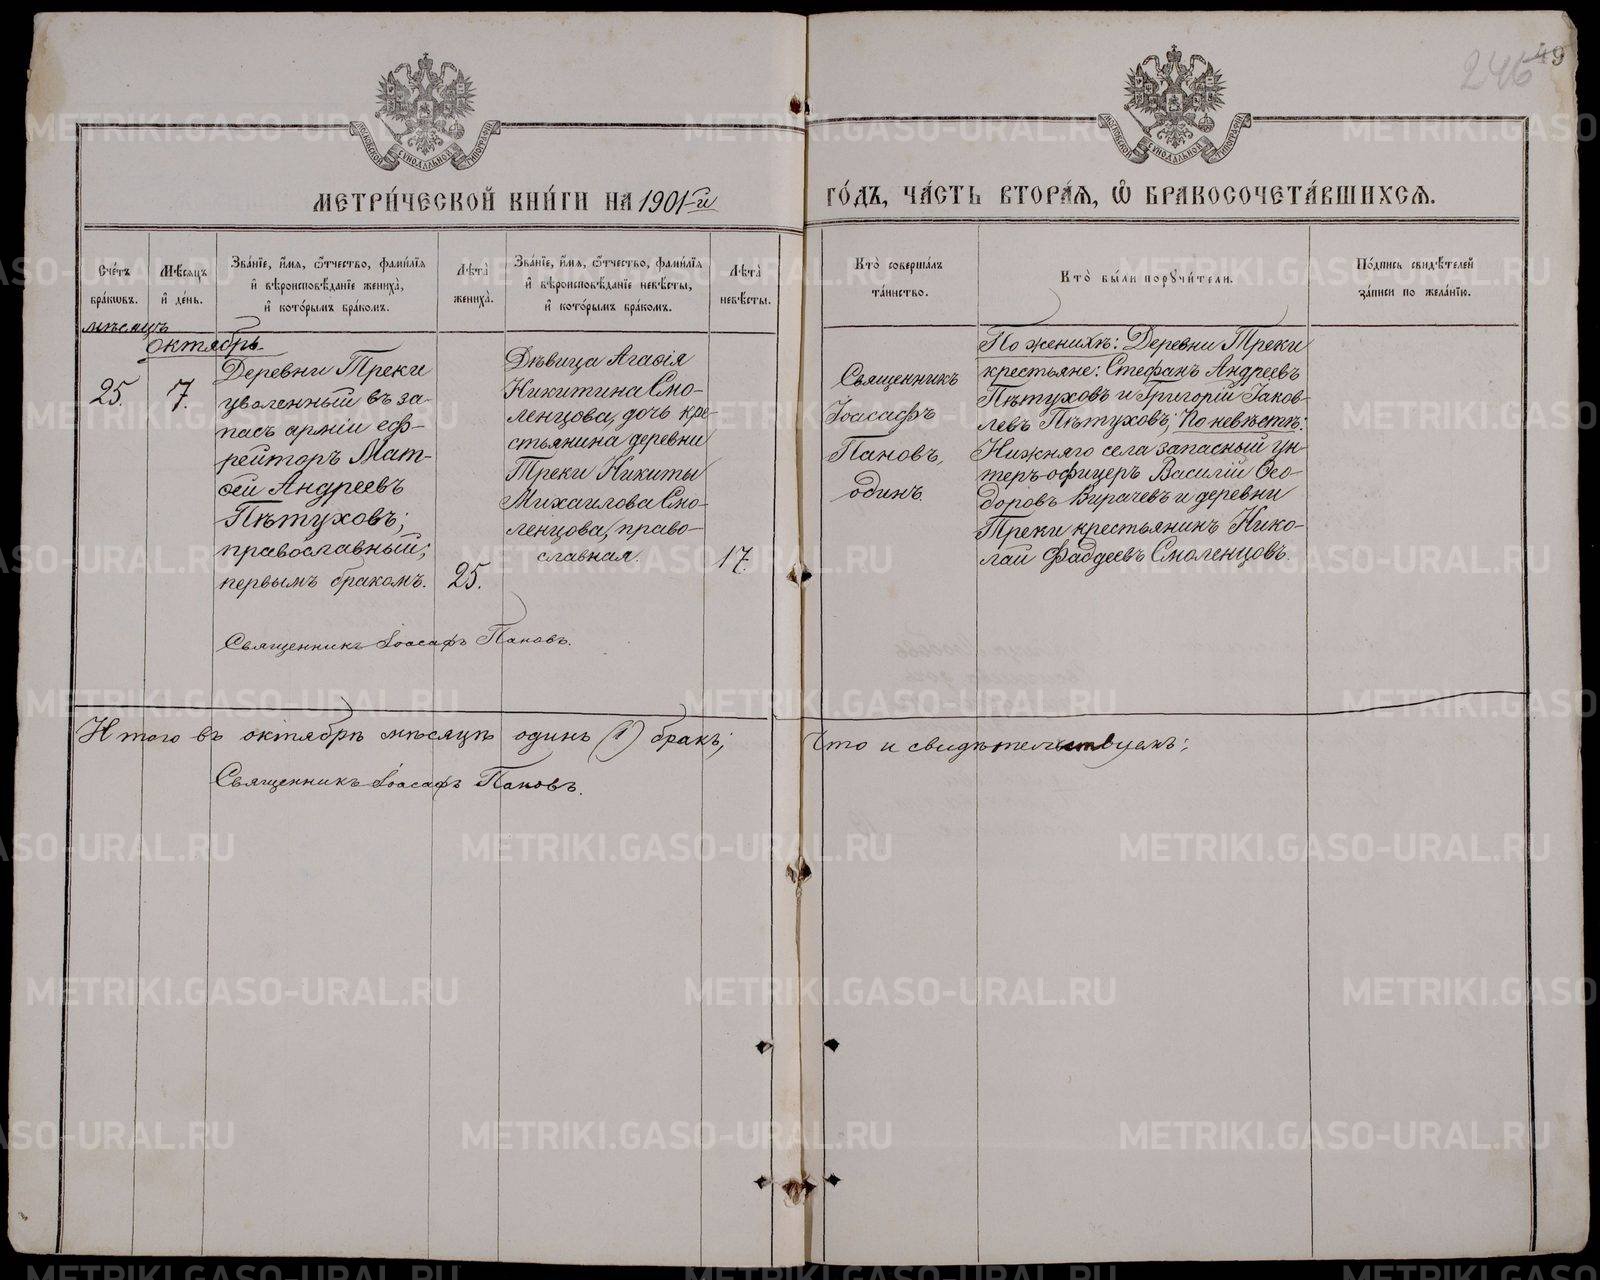 246 49
МОСКОВСКОЙ СѴНОДАЛЬНОЙ ТИПОГРАФІИ
МОСКОВСКОЙ СѴНОДАЛЬНОЙ ТИПОГРАФІИ
МЕТРИ́ЧЕСКОЙ КНИ́ГИ НА 1901-й
ГО́ДЪ, ЧА́СТЬ ВТОРА́Ѧ, Ѽ БРАКОСОЧЕТА́ВШИХСѦ.
Сче́тъ
бра́кѡвъ.
Мѣ́сѧцъ
и҆ день.
Зва́нїе, и҆́мѧ, ѻ҆́тчество, фами́лїѧ
и҆ вѣроисповѣ́данїе жениха̀,
и҆ кото́рымъ бра́комъ.
Лѣта̀
жениха̀.
Зва́нїе, и҆́мѧ, ѻ҆́тчество, фами́лїѧ
и҆ вѣроисповѣ́данїе невѣ́сты,
и҆ кото́рымъ бра́комъ.
Лѣта̀
невѣ́сты.
Кто̀ соверша́лъ
та́инство.
Кто̀ бы́ли порꙋчи́тели.
По́дпись свидѣ́телей
за́писи по жела́нїю.
мѣсяцъ
октябрь
25.
7.
Деревни Треки
уволенный въ за-
пасъ арміи еф-
рейторъ Мат-
ѳей Андреевъ
Пѣтуховъ;
православный;
первымъ бракомъ.
25.
Дѣвица Агаѳія
Никитина Смо-
ленцова, дочь кре-
стьянина деревни
Треки Никиты
Михаилова Смо-
ленцова, право-
славная.
17.
Священникъ
Іоасафъ
Пановъ,
одинъ.
По женихѣ: Деревни Треки
крестьяне: Стефанъ Андреевъ
Пѣтуховъ и Григорій Іаков-
левъ Пѣтуховъ; По невѣстѣ:
Нижняго села запасный ун-
теръ-офицеръ Василій Ѳео-
доровъ Вирачевъ и деревни
Треки крестьянинъ Нико-
лай Фаддеевъ Смоленцовъ.
Священникъ Іоасафъ Пановъ.
Итого въ октябрѣ мѣсяцѣ одинъ (1) бракъ;
Что и свидѣтельствуемъ:
Священникъ Іоасафъ Пановъ.
METRIKI.GASO-URAL.RU